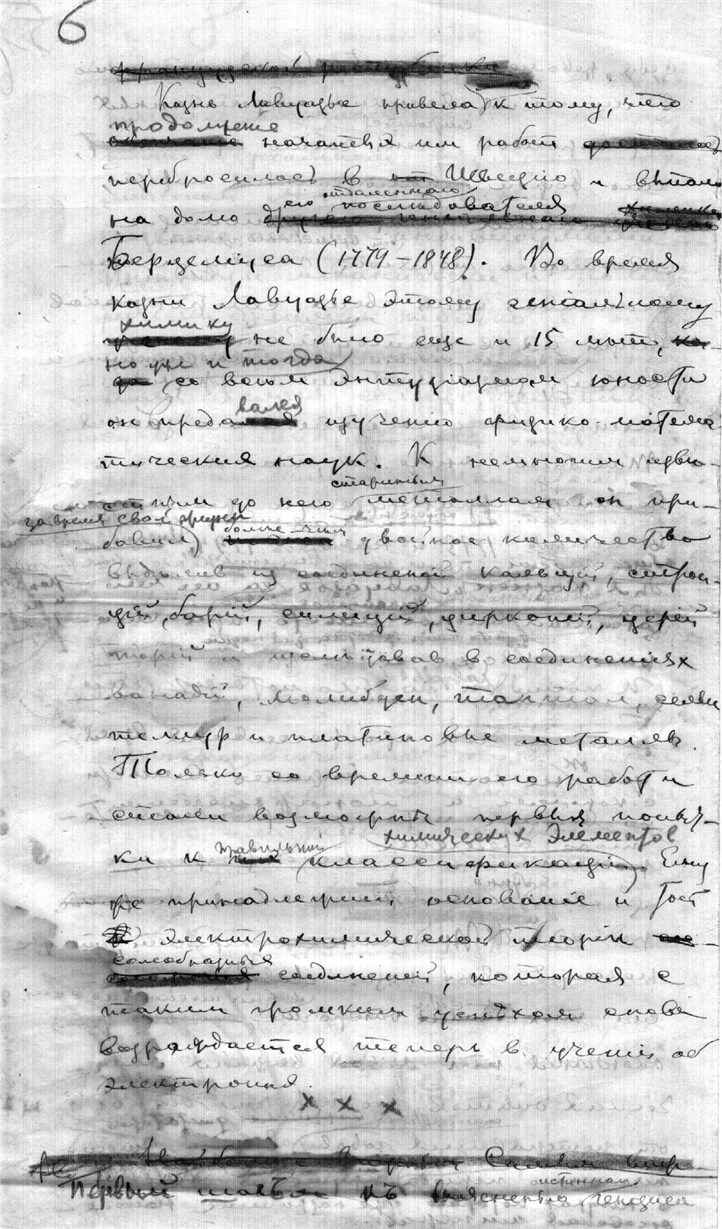 6
Казнь Лавуазье привела к тому, что
продолжение
начатыхъ им работ
перебросилась в Швецию и выпала
его талантливого
на долю последователя
Берцелиуса (1779–1848). Во время
казни Лавуазье этому гениальному
химику
не было еще и 15 лет,
но уже и тогда
со всем энтузиазмом юности
он предавался изучению физико-матема-
тическихъ наук. К немногим изве-
старинным
стным до него металлам он при-
за время своей жизни
более чем
бавил двойное количество
выделив из соединений кальций, строн-
ций, барий, силиций, цирконий, церий
торий и исследовав в соединенияхъ
ванадий, молибден, тантал, селен
теллур и платиновые металлы.
Только со времени его работ и
стали возможны первыя попыт-
химических Элементов
правильной
ки к классификации. Ему
же принадлежит основание и
электрохимической теории
солеобразныхъ
соединений, которая с
таким громким успехом снова
возрождается теперь в учении об
электронахъ.
х х х
Первый шагъ къ выяснению генезиса
истинного